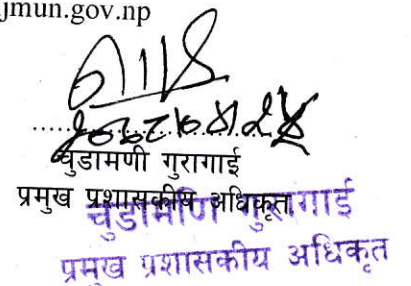 jmun.gov.np
चुडामणी गुरागाई
प्रमुख प्रशासकीय अधिकृत
चुडामणि गुरागाई
प्रमुख प्रशासकीय अधिकृत